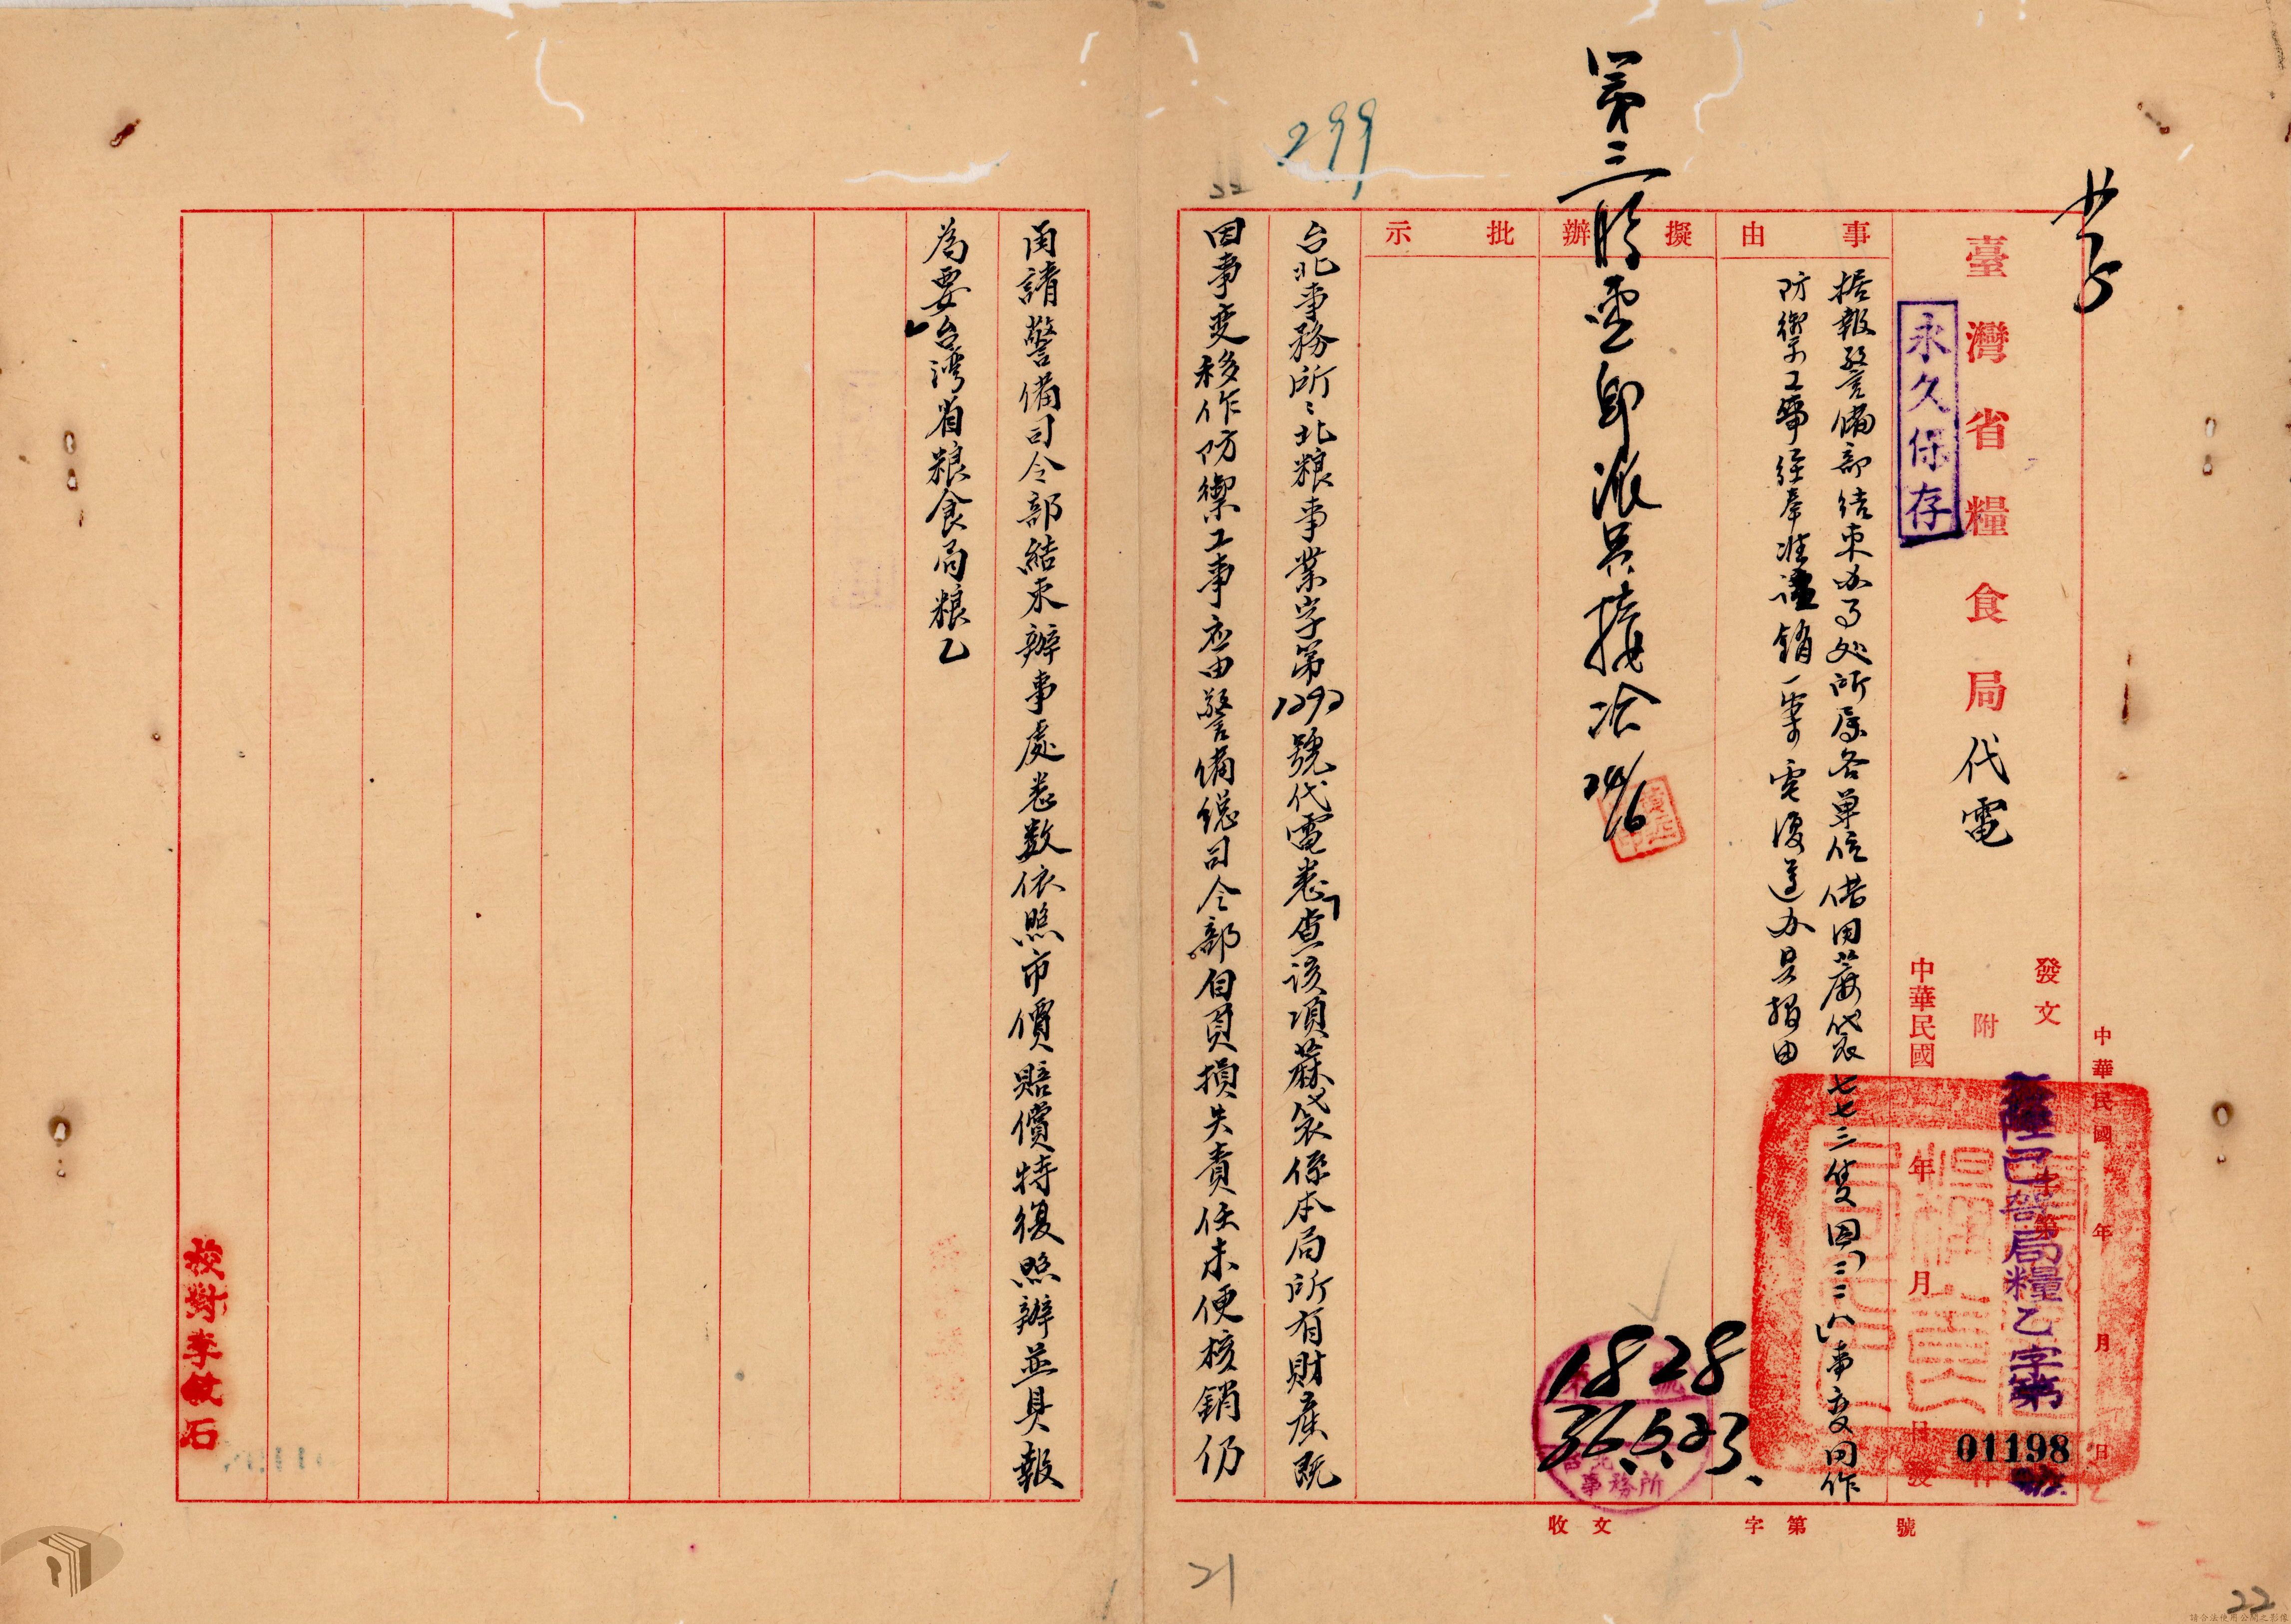 臺灣省糧食局代電
永久保存
發文
附
中華民國 年 月 日發
中華民國 年 月 日
己哿局糧乙字第
01198
事由
擬辦
批示
据報警備部結束办事处所屬各單位借用蔴袋七七三隻因「二二八」事变囤作
防禦工事經奉准註銷一案電復遵办具報由
第三股
台北事務所:北粮事業字第1292號代電悉查該項蔴袋係本局所有財產既
因事变移作防禦工事应由警備總司令部自負損失責任未便核銷仍
函請警備司令部結束辦事處悉数依照市價賠償特復照辦並具報
為要台湾省粮食局粮乙
校對李敏石
1828
36.5.23.
事務所
收文 字第 號
299
21
22
請合法使用公開之影像